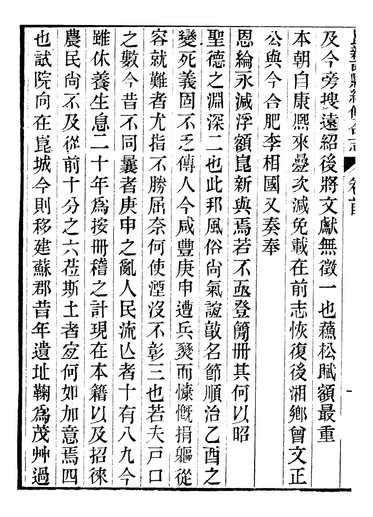 及今旁搜遠紹後將文獻無徵一也蘇松賦額最重
本朝自康熙來疊次減免載在前志恢復後湘鄉曾文正
公與今合肥李相國又奏奉
恩綸永減浮額崑新與焉若不亟登簡冊其何以昭
聖德之淵深二也此邦風俗尚氣誼敦名節順治乙酉之
變死義固不乏傳人今咸豐庚申遭兵燹而慷慨捐軀從
容就難者尤指不勝屈奈何使湮沒不彰三也若夫戸口
之數今昔不同曩者庚申之亂人民流亾者十有八九今
雖休養生息二十年爲按册稽之計現在本籍以及招徠
農民尚不及從前十分之六莅斯土者宐何如加意焉四
也試院向在崑城今則移建蘇郡昔年遺址鞠爲茂艸過